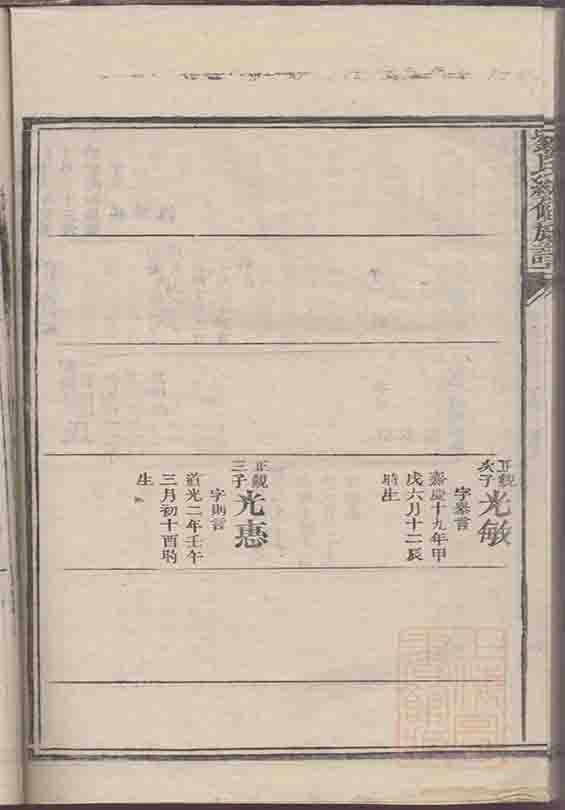 劉氏續修族譜
正覲
次子
光敏
字奉言
嘉慶十九年甲
戌六月十二辰
時生
正覲
三子
光惠
字則言
道光二年壬午
三月初十酉時
生